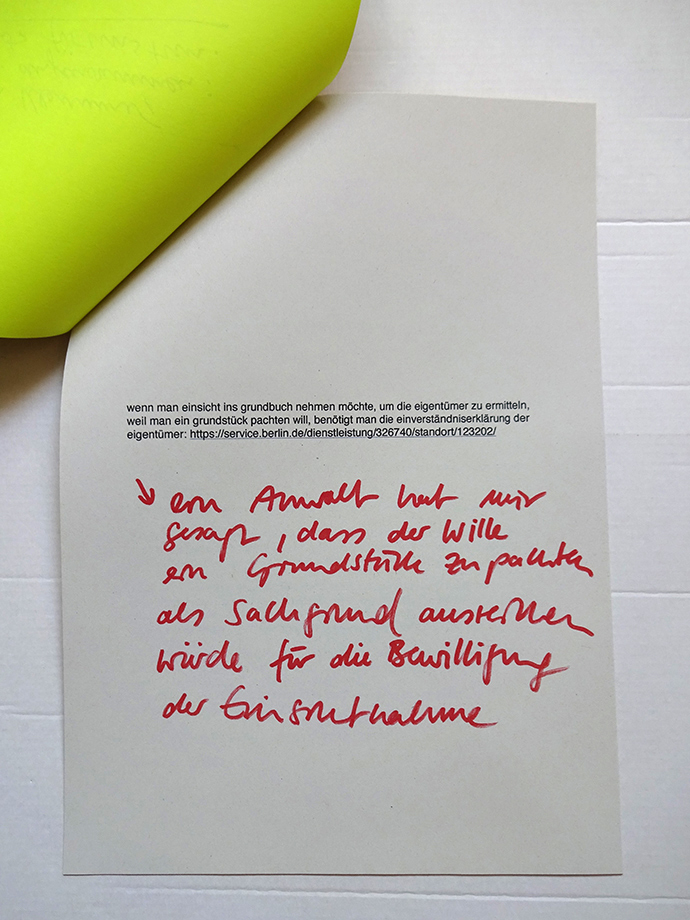 wenn man einsicht ins grundbuch nehmen möchte, um die eigentümer zu ermitteln,
weil man ein grundstück pachten will, benötigt man die einverständniserklärung der
eigentümer: https://service.berlin.de/dienstleistung/326740/standort/123202/
↘ ein Anwalt hat mir
gesagt, dass der Wille
ein Grundstück zu pachten
als Sachgrund ausreichen
würde für die Bewilligung
der Einsichtnahme